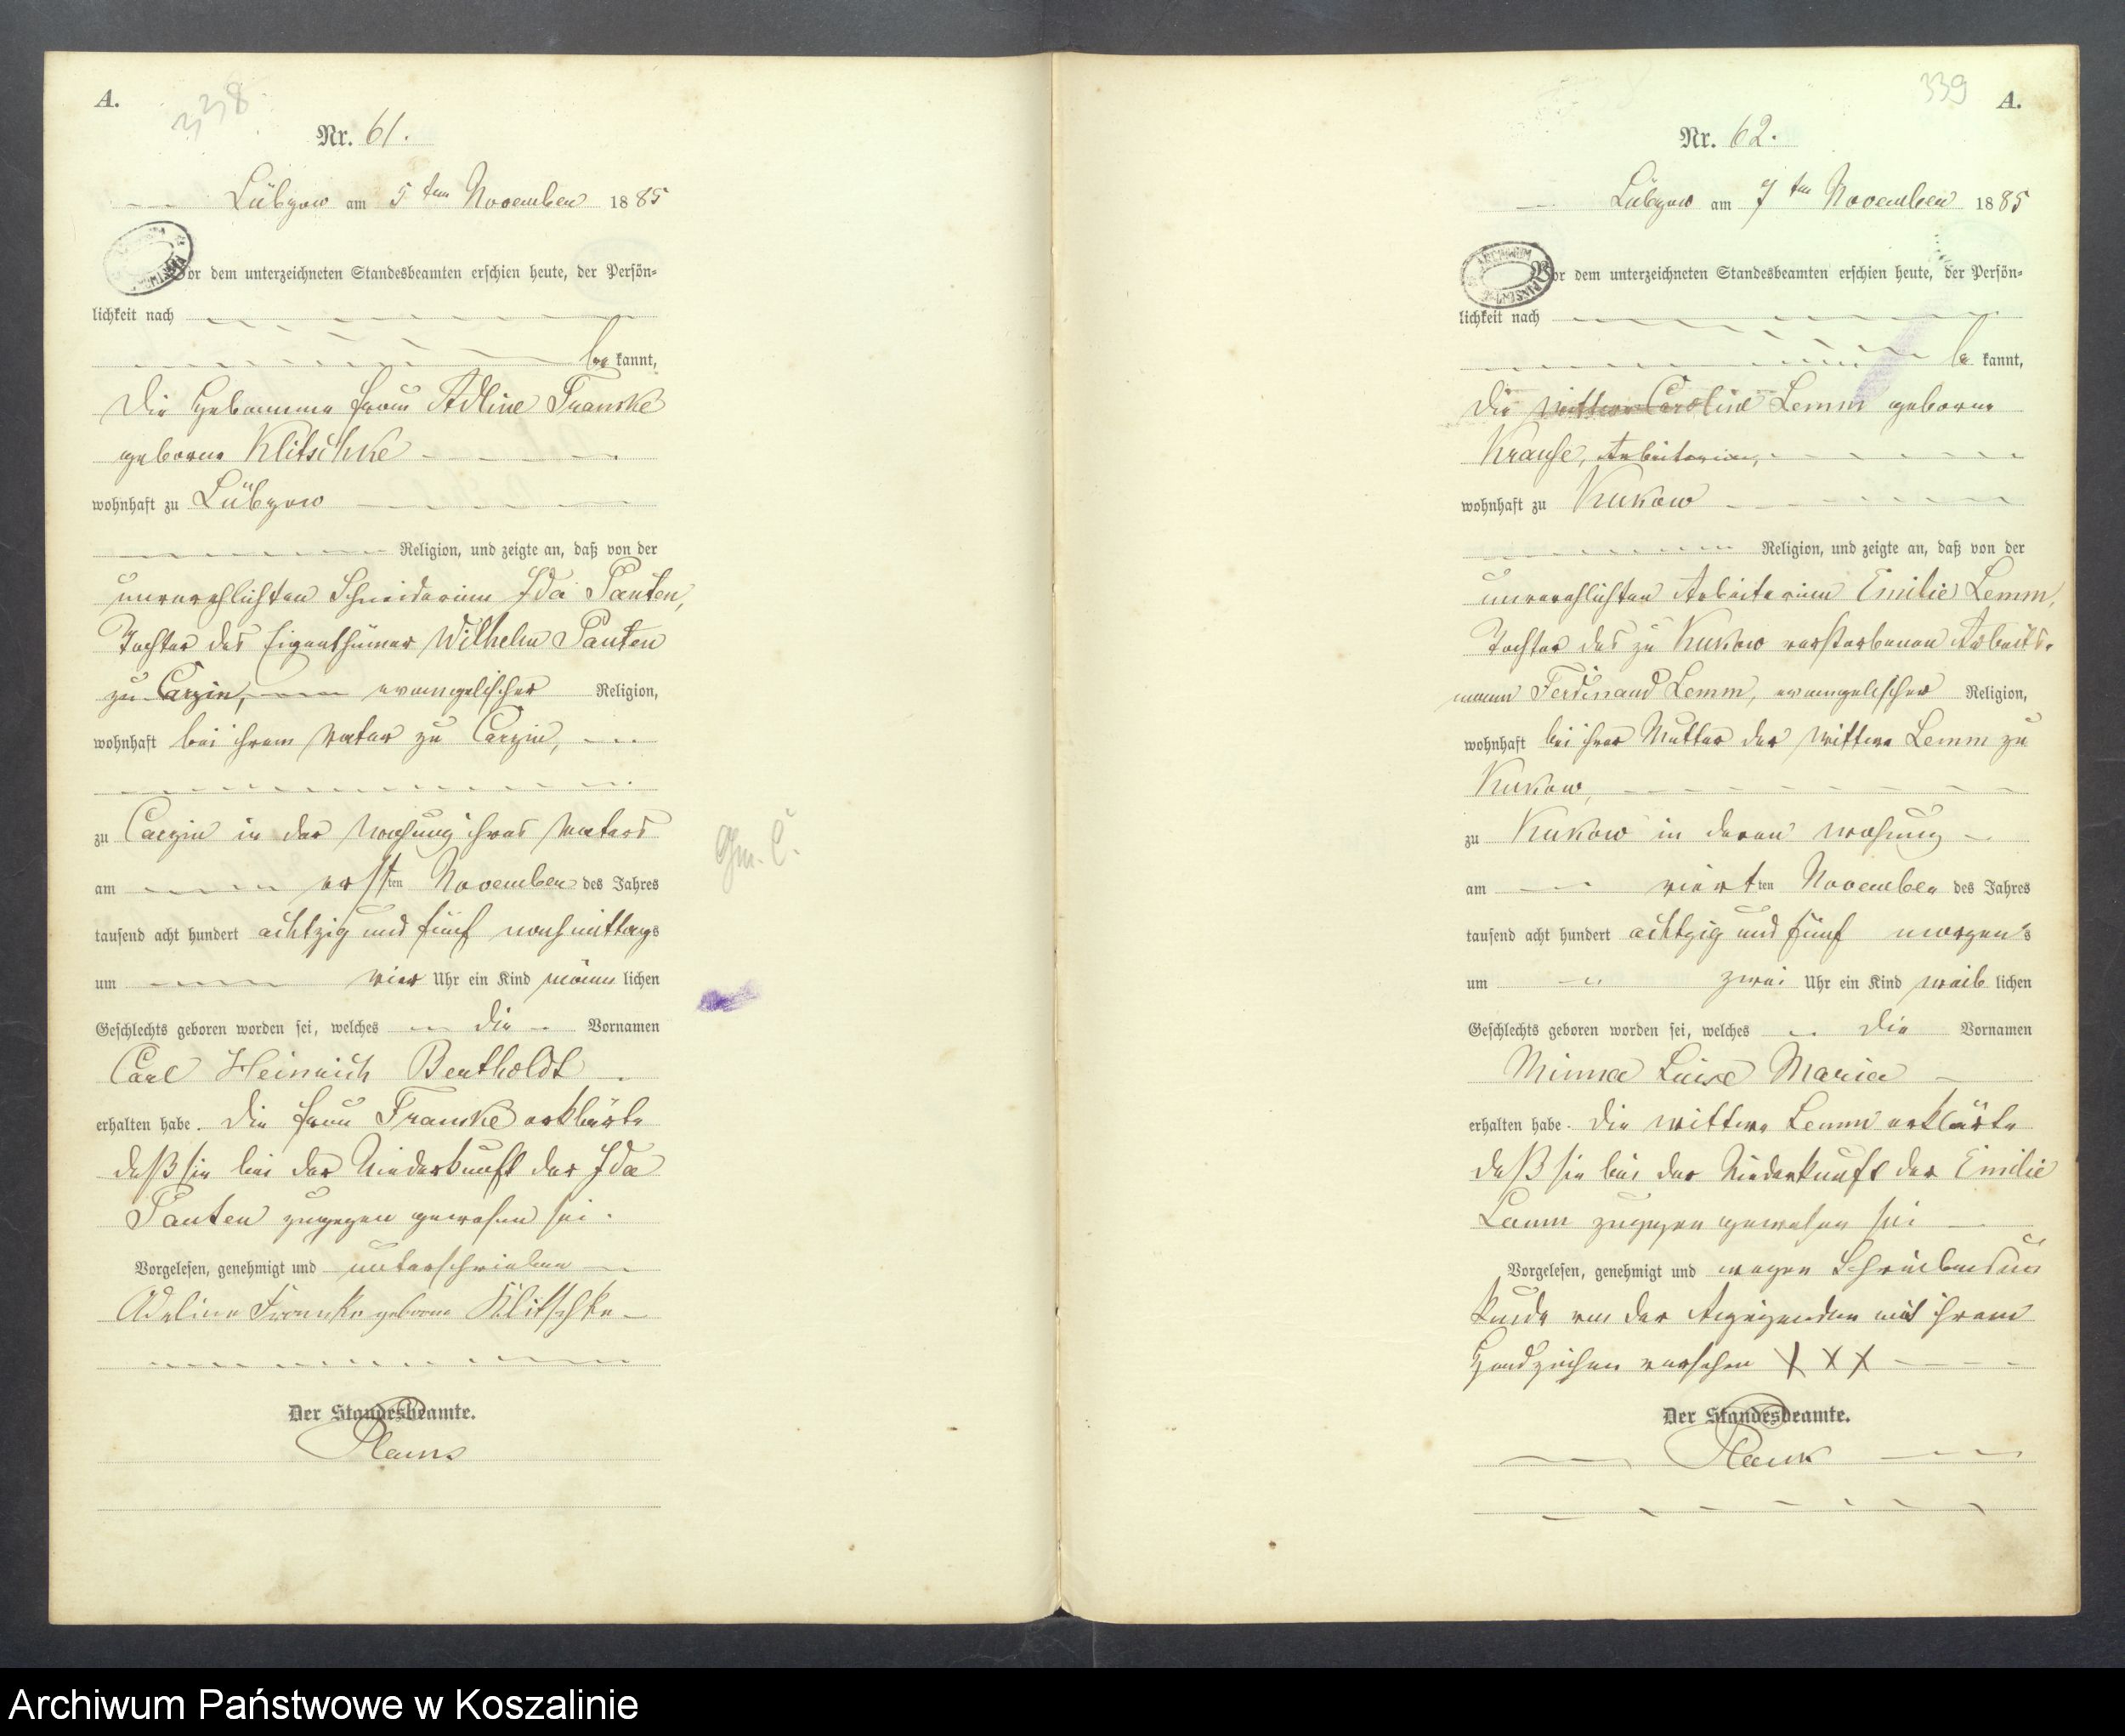 A.
338
Nr. 61.
Lübzow am 5 ten November 1885
Vor dem unterzeichneten Standesbeamten erschien heute, der Persön=
lichkeit nach
be kannt,
die Hebamme Frau Adline Franke
geborne Klitschke
wohnhaft zu Lübzow
Religion, und zeigte an, daß von der
unverehlichten Schneiderinn Ida Panten,
Tochter des Eigenthümer Wilhelm Panten
zu Carzin, evangelischer Religion,
wohnhaft bei ihrem Vater zu Carzin,
zu Carzin in der Wohung ihres Vaters
am ersten November des Jahres
tausend acht hundert achtzig und fünf nachmittags
um vier Uhr ein Kind männ lichen
Geschlechts geboren worden sei, welches die Vornamen
Carl Heinrich Bertholdt
erhalten habe. Die Frau Franke erklärte
daß sie bei der Niederkunft der Ida
Panten zugegen gewesen sei.
Vorgelesen, genehmigt und unterschrieben
Adeline Franke geborne Klitschke
Der Standesbeamte.
339
A.
Nr. 62.
Lübzow am 7 ten November 1885
Vor dem unterzeichneten Standesbeamten erschien heute, der Persön=
lichkeit nach
be kannt,
die Wittwe Caroline Lemm geborne
Krause, Arbeiterinn,
wohnhaft zu Kukow
Religion, und zeigte an, daß von der
unverehlichten Arbeiterinn Emilie Lemm,
Tochter des zu Kukow verstorbenen Arbeits-
mann Ferdinand Lemm, evangelischer Religion,
wohnhaft bei ihrer Mutter der Wittwe Lemm zu
Kukow,
zu Kukow in deren Wohung
am vierten November des Jahres
tausend acht hundert achtzig und fünf morgens
um zwei Uhr ein Kind weib lichen
Geschlechts geboren worden sei, welches die Vornamen
Minna Luise Maria
erhalten habe. Die Wittwe Lemm erklärte
daß sie bei der Niederkunft der Emilie
Lemm zugegen gewesen sei
Vorgelesen, genehmigt und wegen Schreibensun
kunde von der Anzeigenden mit ihrem
Handzeichen versehen XXX
Der Standesbeamte.
Archiwum Państwowe w Koszalinie